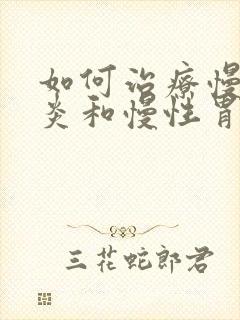 如何治疗慢
炎和慢性胃
三花蛇郎君